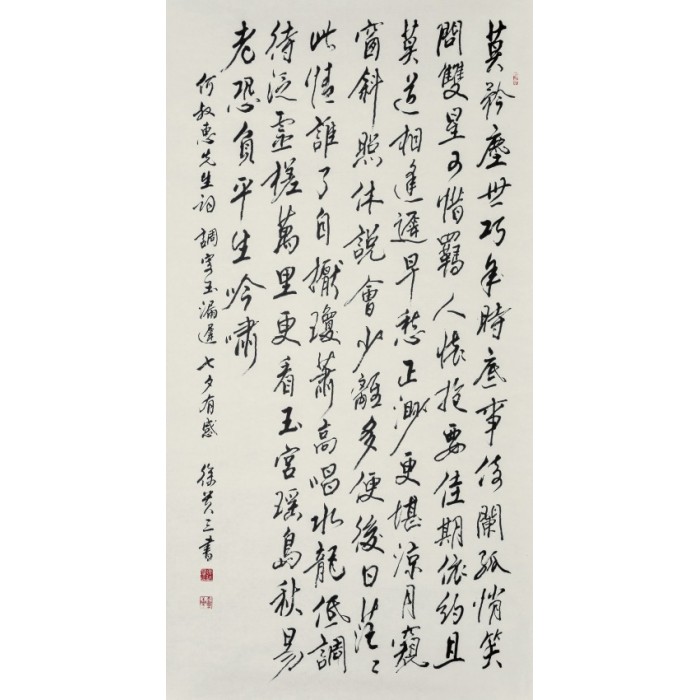 莫矜塵世巧年時底事倚闌孤悄笑
問雙星可惜羈人懷抱要佳期依約且
莫道相逢遲早愁正渺更堪涼月窺
窗斜照休說會少離多便後日茫〻
此情誰了自擫瓊簫高唱水龍低調
待泛靈槎萬里更看玉宮瑤島秋易
老恐負平生吟嘯
何叔惠先生詞 調寄玉漏遲 七夕有感 徐三書